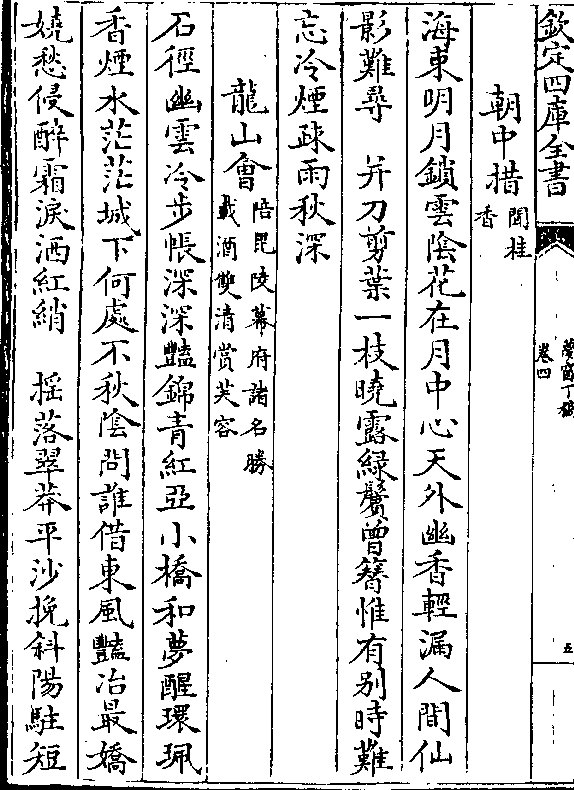 欽定四庫全書
夢窗丁稿
卷四
五
朝中措聞桂香
海東明月鎖雲陰花在月中心天外幽香輕漏人間仙
影難尋　并刀剪葉一枝曉露綠鬢曾簪惟有別時難
忘冷煙疎雨秋深
龍山會陪毘陵幕府諸名勝載酒雙清賞芙容
石徑幽雲冷步帳深深豔錦青紅亞小橋和夢醒環珮
香煙水茫茫城下何處不秋陰問誰借東風豔冶最嬌
嬈愁侵醉霜淚洒紅綃　揺落翠莽平沙挽斜陽駐短